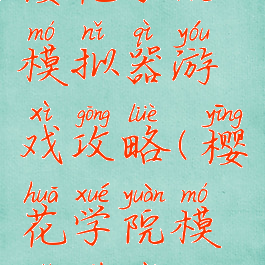 mó nǐ qì yóu
模拟器游
xì gōng lüè yīng
戏攻略(樱
huā xué yuàn mó
花学院模